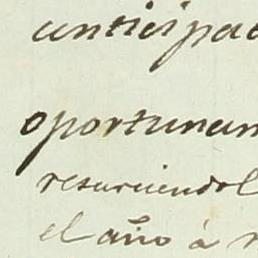 anticipad
oportunam
resarciendol
el año á